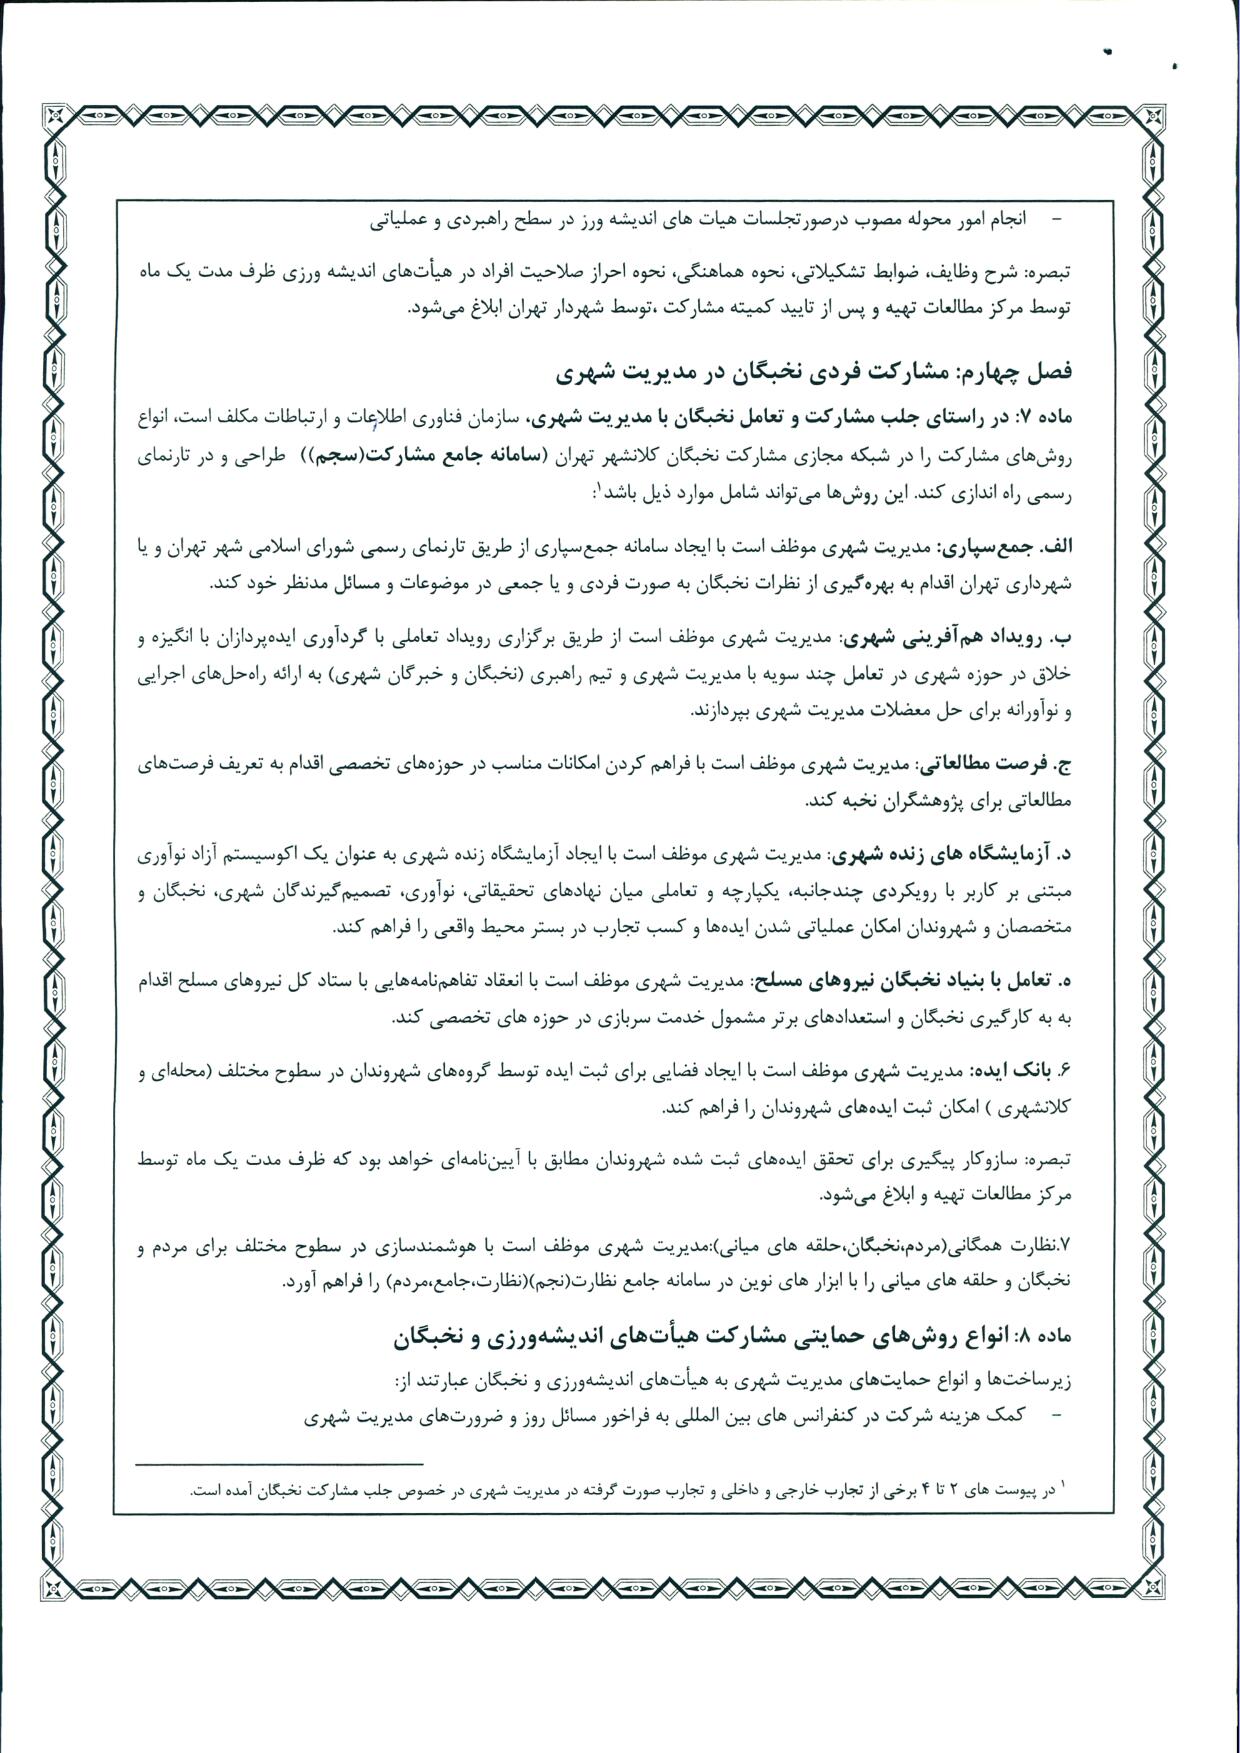 - انجام امور محوله مصوب درصورتجلسات هیات های اندیشه ورز در سطح راهبردی و عملیاتی
تبصره: شرح وظایف، ضوابط تشکیلاتی، نحوه هماهنگی، نحوه احراز صلاحیت افراد در هیأت‌های اندیشه ورزی ظرف مدت یک ماه
توسط مرکز مطالعات تهیه و پس از تایید کمیته مشارکت ،توسط شهردار تهران ابلاغ می‌شود.
فصل چهارم: مشارکت فردی نخبگان در مدیریت شهری
ماده ۷: در راستای جلب مشارکت و تعامل نخبگان با مدیریت شهری، سازمان فناوری اطلاعات و ارتباطات مکلف است، انواع
روش‌های مشارکت را در شبکه مجازی مشارکت نخبگان کلانشهر تهران (سامانه جامع مشارکت(سجم)) طراحی و در تارنمای
رسمی راه اندازی کند. این روش‌ها می‌تواند شامل موارد ذیل باشد۱:
الف. جمع‌سپاری: مدیریت شهری موظف است با ایجاد سامانه جمع‌سپاری از طریق تارنمای رسمی شورای اسلامی شهر تهران و یا
شهرداری تهران اقدام به بهره‌گیری از نظرات نخبگان به صورت فردی و یا جمعی در موضوعات و مسائل مدنظر خود کند.
ب. رویداد هم‌آفرینی شهری: مدیریت شهری موظف است از طریق برگزاری رویداد تعاملی با گردآوری ایده‌پردازان با انگیزه و
خلاق در حوزه شهری در تعامل چند سویه با مدیریت شهری و تیم راهبری (نخبگان و خبرگان شهری) به ارائه راه‌حل‌های اجرایی
و نوآورانه برای حل معضلات مدیریت شهری بپردازند.
ج. فرصت مطالعاتی: مدیریت شهری موظف است با فراهم کردن امکانات مناسب در حوزه‌های تخصصی اقدام به تعریف فرصت‌های
مطالعاتی برای پژوهشگران نخبه کند.
د. آزمایشگاه های زنده شهری: مدیریت شهری موظف است با ایجاد آزمایشگاه زنده شهری به عنوان یک اکوسیستم آزاد نوآوری
مبتنی بر کاربر با رویکردی چندجانبه، یکپارچه و تعاملی میان نهادهای تحقیقاتی، نوآوری، تصمیم‌گیرندگان شهری، نخبگان و
متخصصان و شهروندان امکان عملیاتی شدن ایده‌ها و کسب تجارب در بستر محیط واقعی را فراهم کند.
ه. تعامل با بنیاد نخبگان نیروهای مسلح: مدیریت شهری موظف است با انعقاد تفاهم‌نامه‌هایی با ستاد کل نیروهای مسلح اقدام
به به کارگیری نخبگان و استعدادهای برتر مشمول خدمت سربازی در حوزه های تخصصی کند.
۶. بانک ایده: مدیریت شهری موظف است با ایجاد فضایی برای ثبت ایده توسط گروه‌های شهروندان در سطوح مختلف (محله‌ای و
کلانشهری ) امکان ثبت ایده‌های شهروندان را فراهم کند.
تبصره: سازوکار پیگیری برای تحقق ایده‌های ثبت شده شهروندان مطابق با آیین‌نامه‌ای خواهد بود که ظرف مدت یک ماه توسط
مرکز مطالعات تهیه و ابلاغ می‌شود.
۷.نظارت همگانی(مردم،نخبگان،حلقه های میانی):مدیریت شهری موظف است با هوشمندسازی در سطوح مختلف برای مردم و
نخبگان و حلقه های میانی را با ابزار های نوین در سامانه جامع نظارت(نجم)(نظارت،جامع،مردم) را فراهم آورد.
ماده ۸: انواع روش‌های حمایتی مشارکت هیأت‌های اندیشه‌ورزی و نخبگان
زیرساخت‌ها و انواع حمایت‌های مدیریت شهری به هیأت‌های اندیشه‌ورزی و نخبگان عبارتند از:
- کمک هزینه شرکت در کنفرانس های بین المللی به فراخور مسائل روز و ضرورت‌های مدیریت شهری
۱ در پیوست های ۲ تا ۴ برخی از تجارب خارجی و داخلی و تجارب صورت گرفته در مدیریت شهری در خصوص جلب مشارکت نخبگان آمده است.